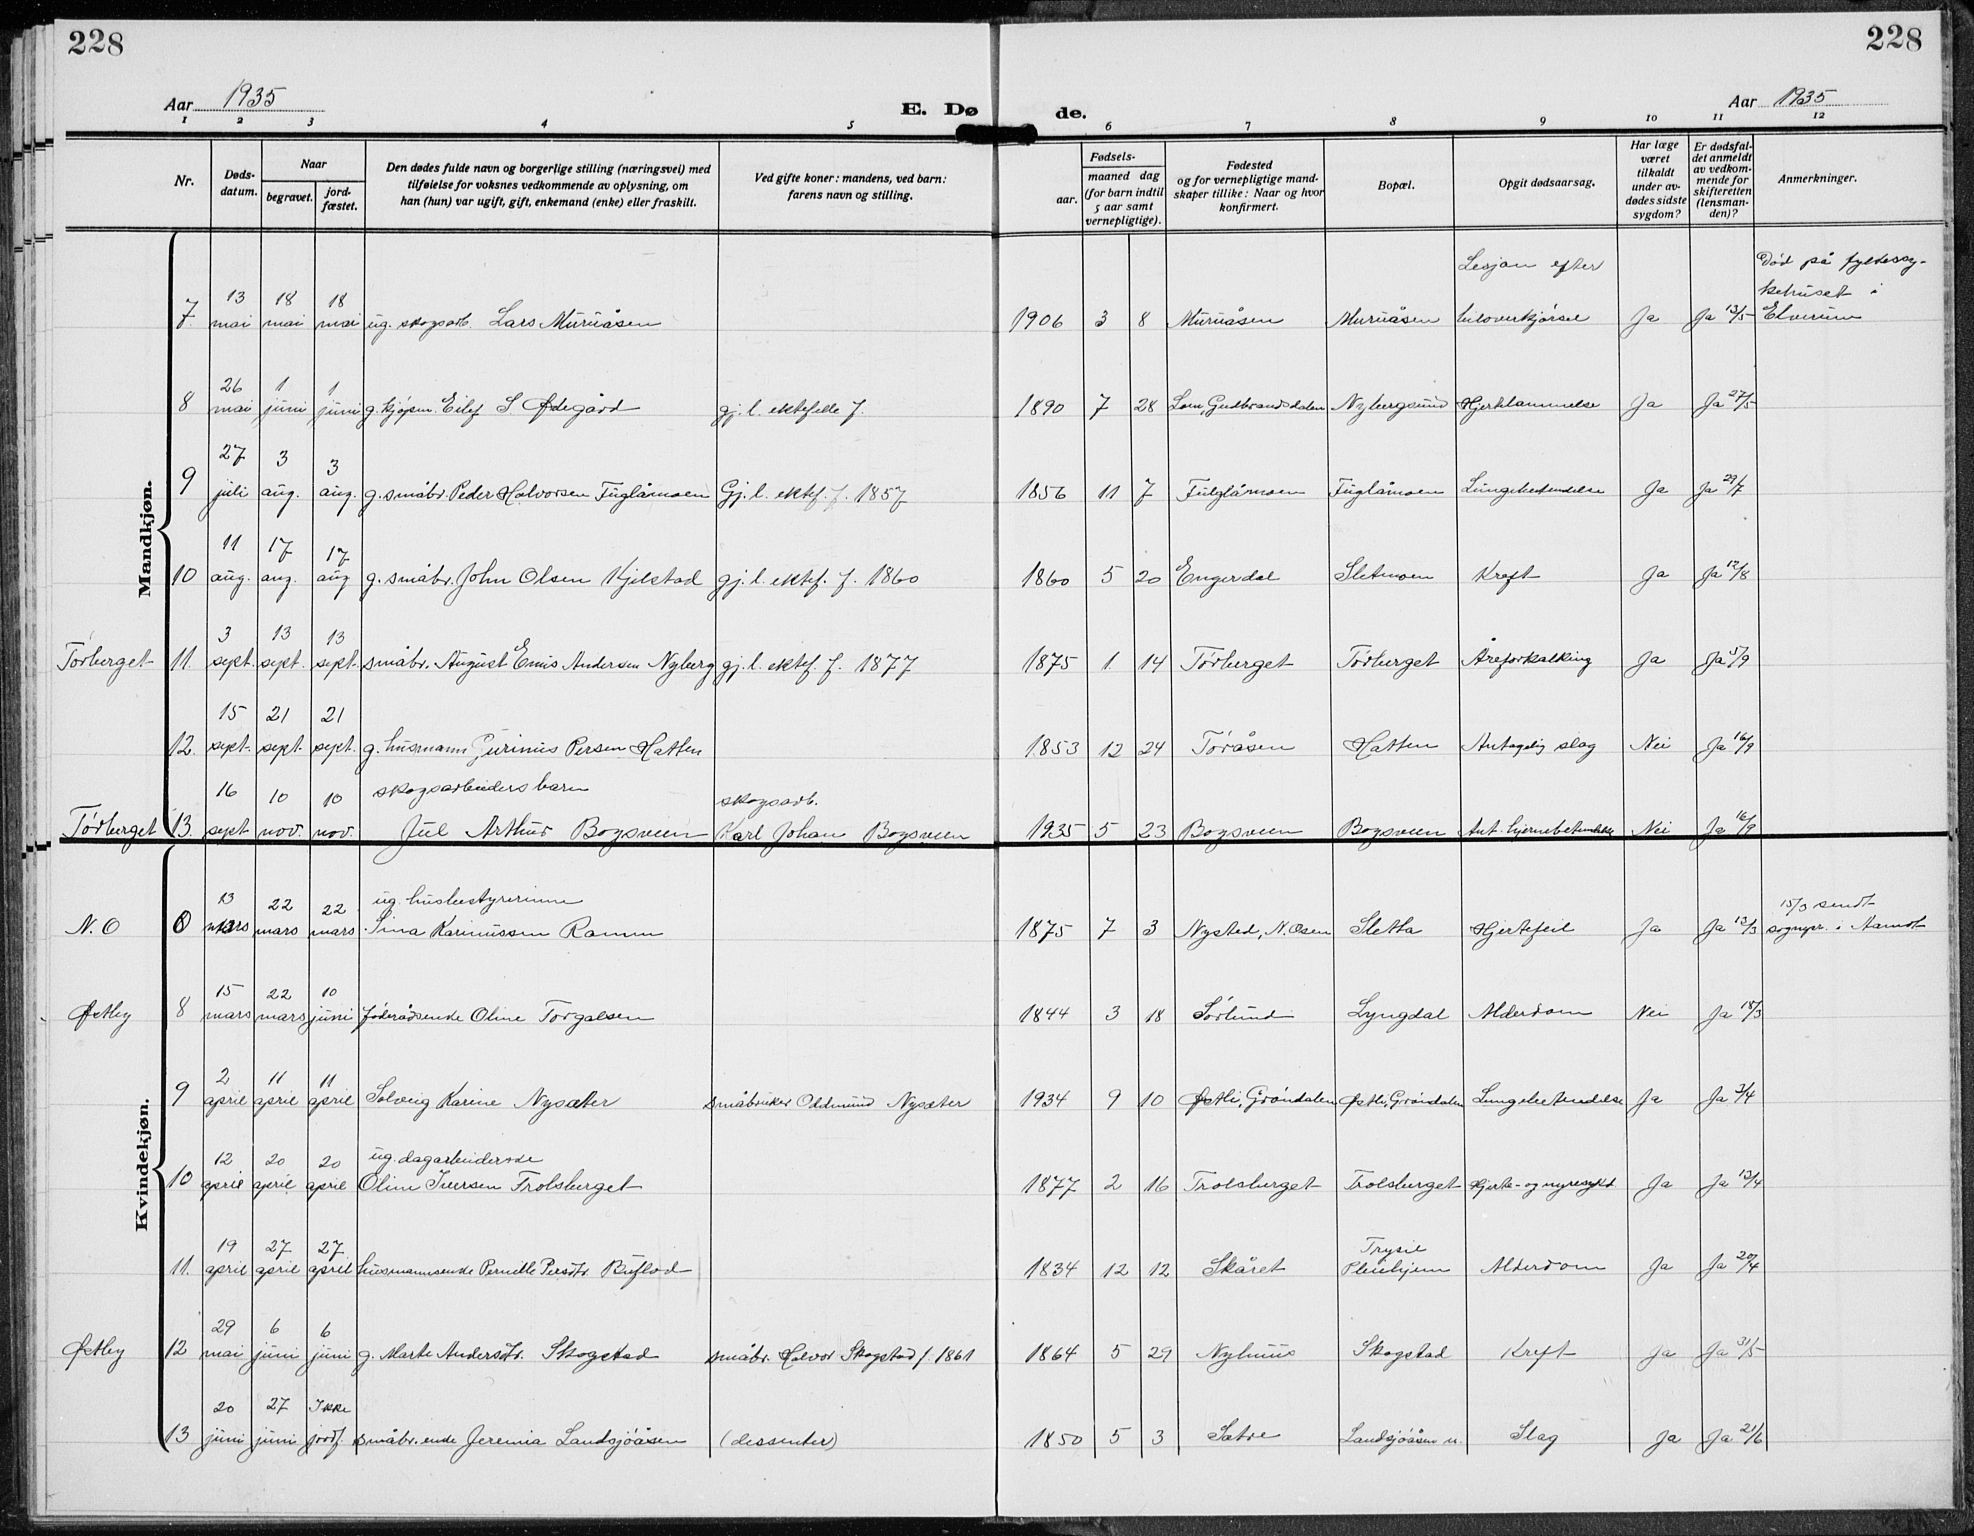 228
228
Aar 1935
E. Dø
de.
Aar 1935
1 2 3 4 5 6 7 8 9 10 11 12
Nr.
Døds-
datum.
Naar
begravet.
jord-
fæstet.
Den dødes fulde navn og borgerlige stilling (næringsvei) med
tilføielse for voksnes vedkommende av oplysning, om
han (hun) var ugift, gift, enkemand (enke) eller fraskilt.
Ved gifte koner: mandens, ved barn:
farens navn og stilling.
Fødsels-
aar.
maaned dag
(for barn indtil
5 aar samt
vernepligtige).
Fødested
og for vernepligtige mand-
skaper tillike: Naar og hvor
konfirmert.
Bopæl.
Opgit dødsaarsag.
Har læge
været
tilkaldt
under av-
dødes sidste
sygdom?
Er dødsfal-
det anmeldt
av vedkom-
mende for
skifteretten
(lensman-
den)?
Anmerkninger.
Mandkjøn.
Lesjon efter
Død på fylkessy-
kehuset i
13 18 18
7. mai mai mai ug. skogsarb. Lars Muruåsen 1906 3 8 Muruåsen Muruåsen biloverkjørsel Ja Ja 13/5 Elverum
26 1 1
8 mai juni juni g. kjøpm. Eilef S. Ødegård gj. l. ektefelle f. 1890 7 28 Lom, Gudbrandsdalen Nybergsund Hjertelammelse Ja Ja 27/5
27 3 3
9 juli aug. aug. g. småbr. Peder Halvorsen Fuglåmoen Gj. l. ektef. f. 1857 1856 11 7 Fulglåmoen Fuglåmoen Lungebetendelse Ja Ja 29/7
11 17 17
10 aug. aug. aug g. småbr. John Olsen Kjilstad gj. l. ektef. f. 1860 1860 5 20 Engerdal Sletmoen Kreft Ja Ja 12/8
3 13 13
Tørberget 11. sept. sept. sept. småbr. August Emis Andersen Nyberg gj. l. ektef. f. 1877 1875 1 14 Tørberget Tørberget Åreforkalking Ja Ja 5/9
15 21 21
12. sept. sept. sept. g. husmann Gurinius Persen Hatten 1853 12 24 Tøråsen Hatten Antagelig slag Nei Ja 16/9
16 10 10 skogsarbeiders barn skogsarb.
Tørberget 13. sept nov. nov. Jul Arthur Bogsveen Karl Johan Bogsveen 1935 5 23 Bogsveen Bogsveen Ant. hjernebetendelse Nei Ja 16/9
Kvindekjøn.
13 22 22 ug. husbestyrerinne 15/3 sendt
N. O mars mars mars Sina Karinussen Ramm 1875 7 3 Nysted, N. Osen Sletta Hjertefeil Ja Ja 13/3 sognepr. i Aamot
15 22 10
Østby 8 mars mars juni føderådsenke Oline Torgalsen 1844 3 18 Sørlund Lyngdal Alderdom Nei Ja 18/3
2 11 11
9 april april april Solveig Karine Nysæter småbruker Oddmund Nysæter 1934 9 10 Østli, Grøndalen Østli, Grøndalen Lungebetendelse Ja Ja 3/4
12 20 20 ug. dagarbeiderske
10 april april april Oline Iversen Trolsberget 1877 2 16 Trolsberget Trolsberget Hjerte- og nyresykd Ja Ja 13/4
19 27 27 Trysil
11. april april april husmannsenke Pernille Persdtr. Buflod 1834 12 12 Skåret Pleiehjem Alderdom Ja Ja 20/4
29 6 6
Østby 12 mai juni juni g. Marte Andersdtr. Skogstad småbr. Halvor Skogstad f. 1861 1864 5 29 Nyhuus Skogstad Kreft Ja Ja 31/5
20 27 Ikke
13 juni juni jordf. småbr. enke Jeremia Landsjøåsen (dissenter) 1850 5 3 Sætre Landsjøåsen Slag Ja Ja 21/6